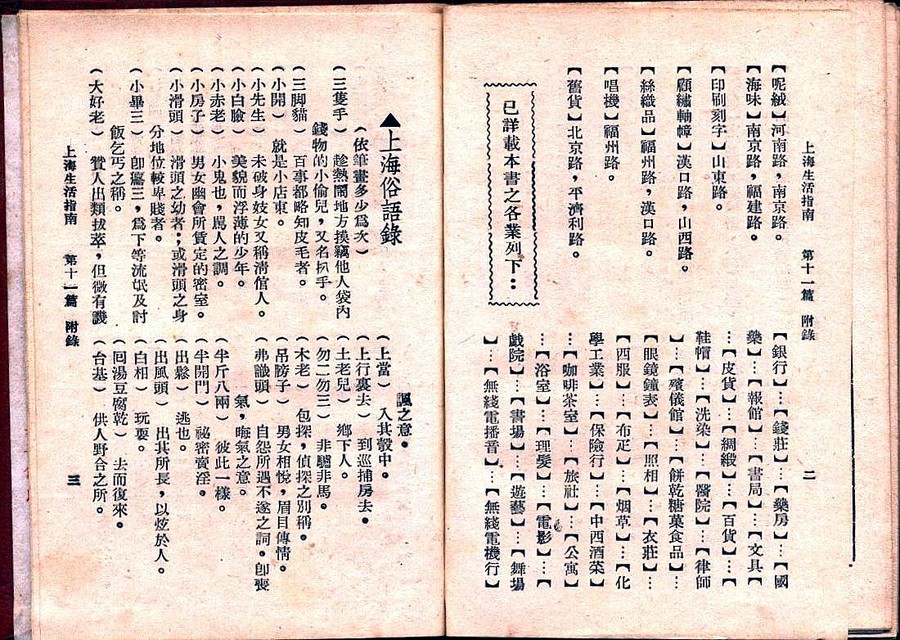 上海生活指南　第十一篇　附錄　二
【呢絨】河南路，南京路。
【海味】南京路，福建路。
【印刷刻字】山東路。
【顧繡軸幛】漢口路，山西路。
【絲織品】福州路，漢口路。
【唱機】福州路。
【舊貨】北京路，平濟利路。
已詳載本書之各業列下：
【銀行】…【錢莊】…【藥房】…【國
藥】…【報館】…【書局】…【文具】
…【皮貨】…【綢緞】…【百貨】…【
鞋帽】…【洗染】…【醫院】…【律師
】…【殯儀館】…【餅乾糖菓食品】…
【眼鏡鐘表】…【照相】…【衣莊】…
【西服】…【布疋】…【烟草】…【化
學工業】…【保險行】…【中西酒菜】
…【咖啡茶室】…【旅社】…【公寓】
…【浴室】…【理髮】…【電影】…【
戲院】…【書場】…【遊藝】…【舞場
】…【無綫電播音】…【無綫電機行】
▲上海俗語錄
（依筆畫多少爲次）
（三隻手）　趁熱鬧地方摸竊他人袋內
錢物的小偷兒，又名扒手。
（三脚貓）　百事都略知皮毛者。
（小開）　就是小店東。
（小先生）　未破身妓女又稱淸倌人。
（小白臉）　美貌而浮薄的少年。
（小赤老）　小鬼也，駡人之調。
（小房子）　男女幽會所賃定的密室。
（小滑頭）　滑頭之幼者；或滑頭之身
分地位較卑賤者。
（小畢三）　卽癟三，爲下等流氓及討
飯乞丐之稱。
（大好老）　贊人出類拔萃，但微有譏
諷之意。
（上當）　入其彀中。
（上行裏去）　到巡捕房去。
（土老兒）　鄉下人。
（勿二勿三）　非驢非馬。
（木老）　包探，偵探之別稱。
（吊膀子）　男女相悅，眉目傳情。
（弗識頭）　自怨所遇不遂之詞。卽喪
氣，晦氣之意。
（半斤八兩）　彼此一樣。
（半開門）　祕密賣淫。
（出鬆）　逃也。
（出風頭）　出其所長，以炫於人。
（白相）　玩耍。
（囘湯豆腐乾）　去而復來。
（台基）　供人野合之所。
上海生活指南　第十一篇　附錄　三